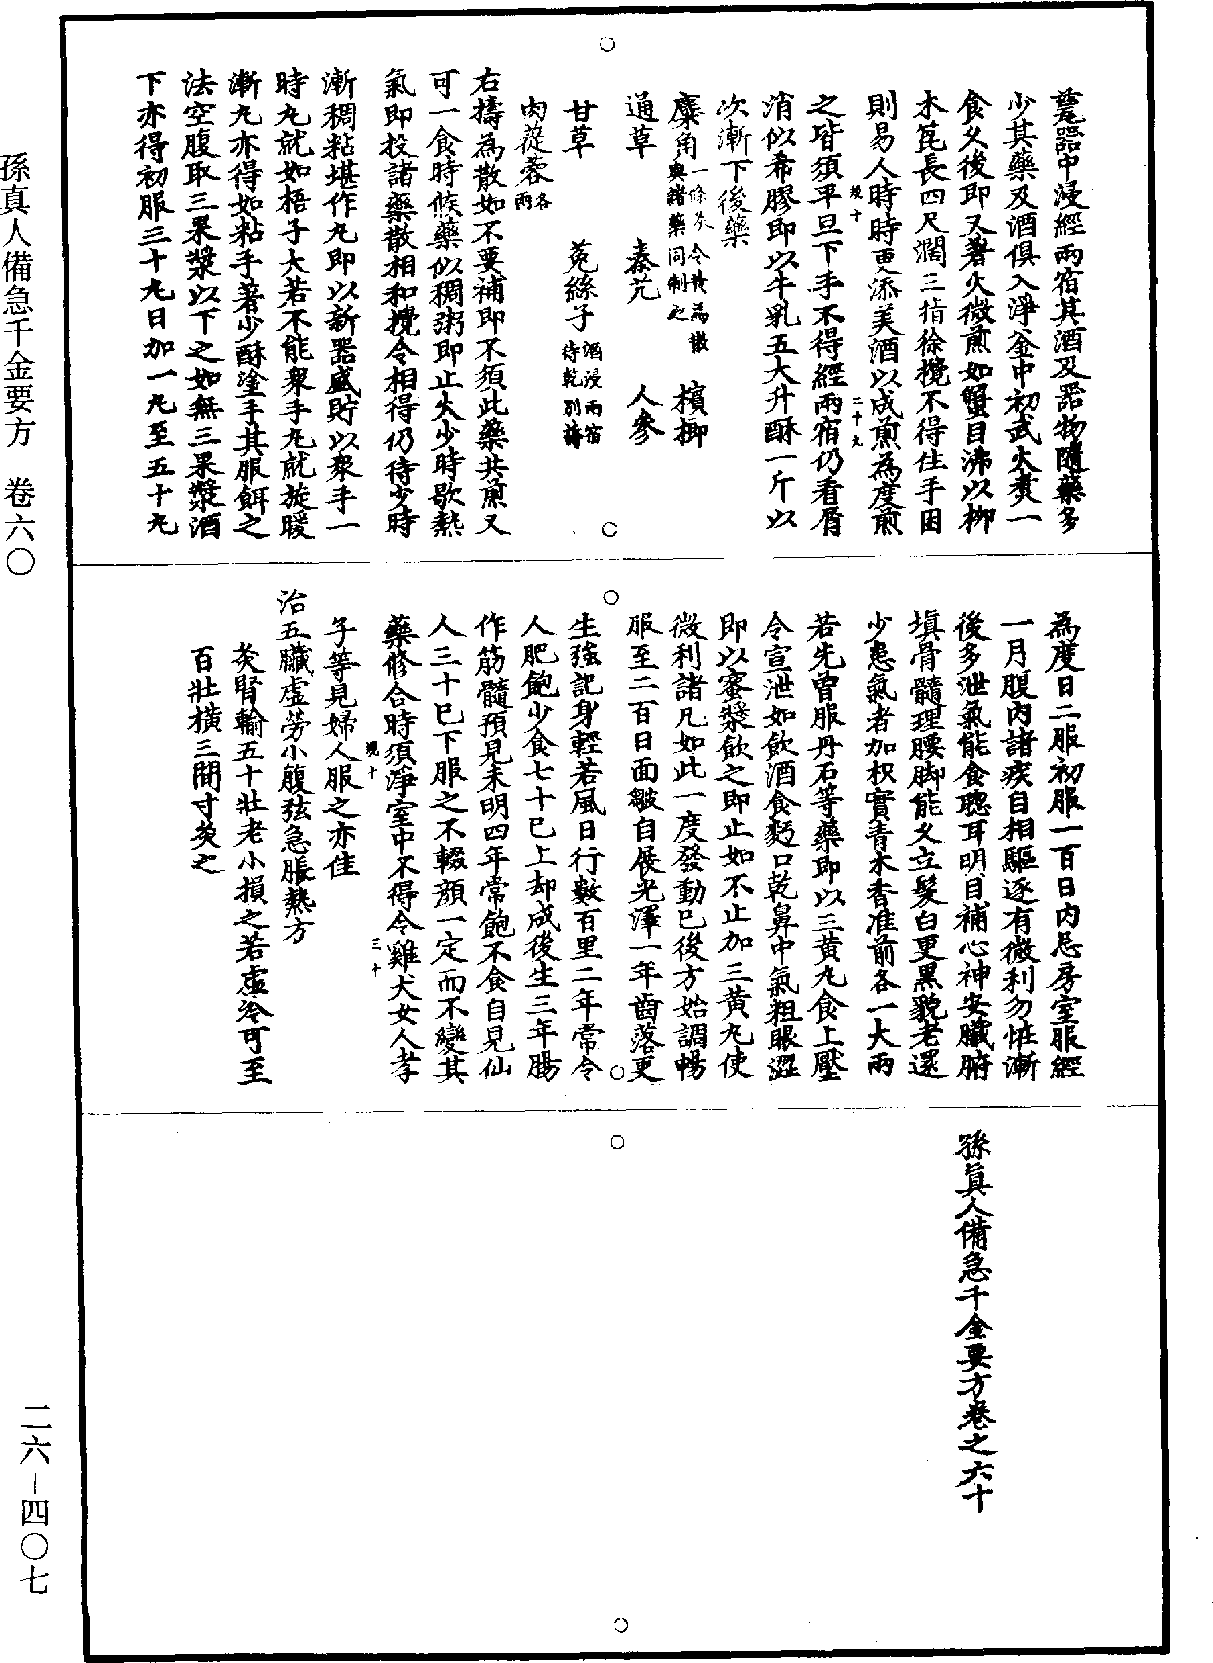 甕器中浸經兩宿其酒及器物隨藥多
少其藥及酒俱入淨釜中初武火煑一
食久後即又著火微煎如蟹目沸以柳
木篦長四尺濶三指徐攪不得住手困
則易人時時更添美酒以成煎為度煎
之皆須平旦下手不得經兩宿仍看屑
消似希膠即以牛乳五大升酥一斤以
次漸下後藥
麋角一條炙令黃為散與諸藥同制之　檳榔
通草　秦艽　人參
甘草　菟絲子酒浸兩宿待乾別擣
肉蓯蓉各兩
右擣為散如不要補即不須此藥共煎又
可一食時候藥似稠粥即止火少時歇熱
氣即投諸藥散相和攪令相得仍待少時
漸稠粘堪作丸即以新器盛貯以衆手一
時丸就如梧子大若不能衆手丸就旋暖
漸丸亦得如粘手著少酥塗手其服餌之
法空腹取三果漿以下之如無三果漿酒
下亦得初服三十九日加一丸至五十丸
規十　二十九
為度日二服初服一百日內忌房室服經
一月腹內諸疾自相驅逐有微利勿怪漸
後多泄氣能食聰耳明目補心神安臟腑
填骨髓理腰脚能久立髮白更黑貌老還
少患氣者加枳實青木香准前各一大兩
若先曾服丹石等藥即以三黃丸食上壓
令宣泄如飲酒食麪口乾鼻中氣粗眼澀
即以蜜漿飲之即止如不止加三黃丸使
微利諸凡如此一度發動已後方始調暢
服至二百日面皺自展光澤一年齒落更
生強記身輕若風日行數百里二年常令
人肥飽少食七十已上却成後生三年腸
作筋髓預見未明四年常飽不食自見仙
人三十已下服之不輟顏一定而不變其
藥修合時須淨室中不得令雞犬女人孝
子等見婦人服之亦佳
規十　三十
治五臟虛勞小腹弦急脹熱方
灸腎輸五十壯老小損之若虛冷可至
百壯橫三間寸灸之
孫真人備急千金要方卷之六十
孫真人備急千金要方　卷六〇
二六－四〇七